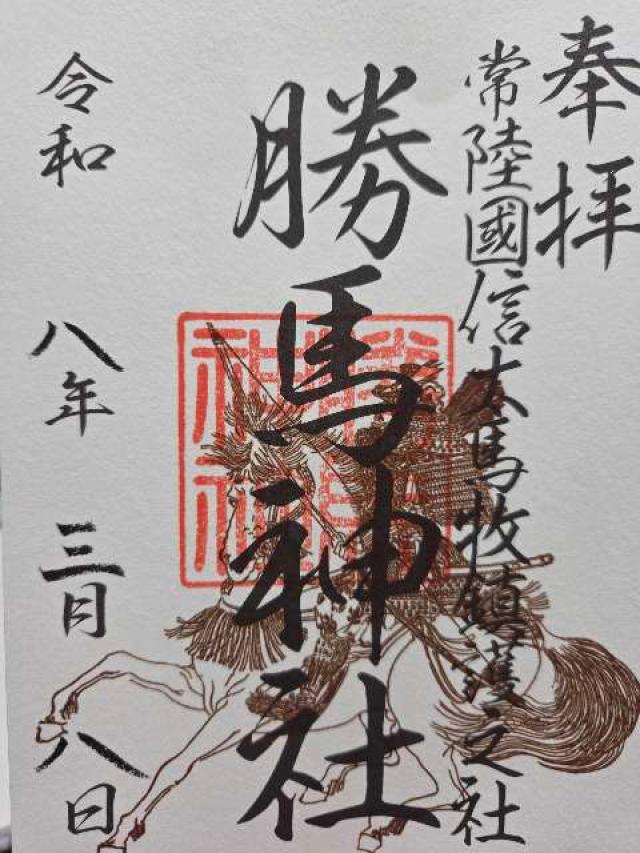 奉拝
常陸國信太馬牧鎮護之社
勝馬神社
令和八年三月八日